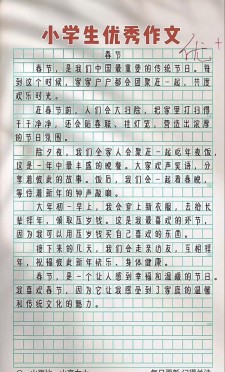 小学生优秀作文
优+
春节
春节，是我们中国最重要的传统节日。每
到这个时候，家家户户都会团聚在一起，共度
欢乐时光。
在春节前，人们会大扫除，把家里打扫得
干干净净，还会贴春联、挂灯笼，营造出浓厚
的节日氛围。
除夕夜，我们全家人会聚在一起吃年夜饭，
这是一年中最丰盛的晚餐。大家欢声笑语，分
享着彼此的故事。饭后，我们会一起看春晚，
等待着新年的钟声敲响。
大年初一早上，我会穿上新衣服，去给长
辈拜年，领取压岁钱。这是我最喜欢的环节，
因为我可以用压岁钱买自己喜欢的东西。
接下来的几天，我们会走亲访友，互相拜
年，祝福彼此新年快乐、身体健康。
春节，是一个让人感到幸福和温暖的节日。
我喜欢春节，因为它让我感受到了家庭的温馨
和传统文化的魅力。